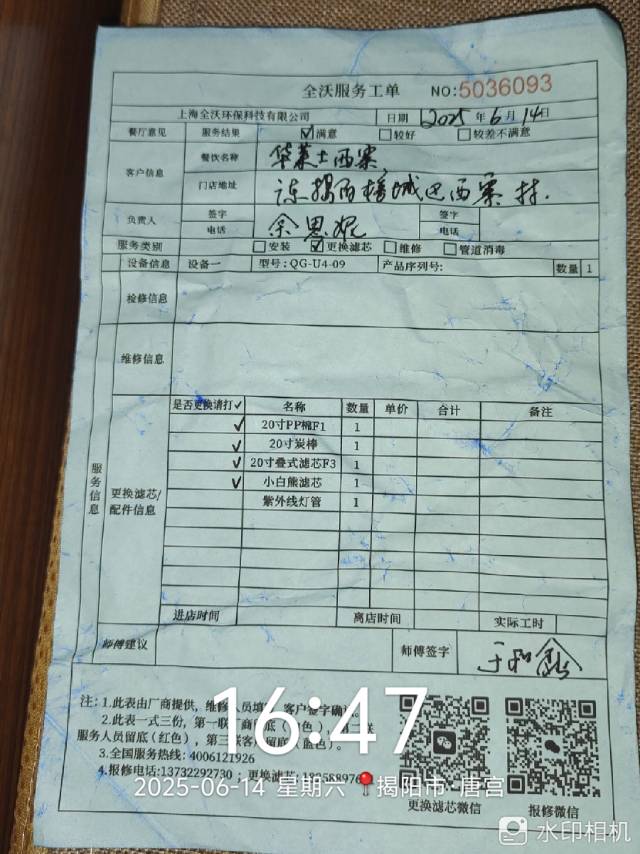 全沃服务工单 NO:5036093
上海全沃环保科技有限公司 日期 2025年6月14日
餐厅意见 服务结果 ☑满意 □较好 □较差不满意
客户信息 餐饮名称 华莱士西寨
门店地址 揭 榕城 西寨村.
负责人 签字 电话 余思 签字 电话
服务类别 □安装 ☑更换滤芯 □维修 □管道消毒
设备信息 设备一 型号:QG-U4-09 产品序列号: 数量 1
检修信息
维修信息
服务信息
更换滤芯/配件信息
是否更换请打✓ 名称 数量 单价 合计 备注
✓ 20寸PP棉F1 1
✓ 20寸炭棒 1
✓ 20寸叠式滤芯F3 1
✓ 小白熊滤芯 1
紫外线灯管 1
进店时间 离店时间 实际工时
师傅建议 师傅签字
注:1.此表由厂商提供,维修人员填 客户签字确认
2.此表一式三份,第一联厂商 底( 色), 二联
服务人员留底(红色),第三联客 留底(蓝色)。
3.全国服务热线:4006121926
4.报修电话:13732292730 ;更换滤芯:
更换滤芯微信 报修微信
16:47
2025-06-14 星期六 揭阳市·唐宫
水印相机